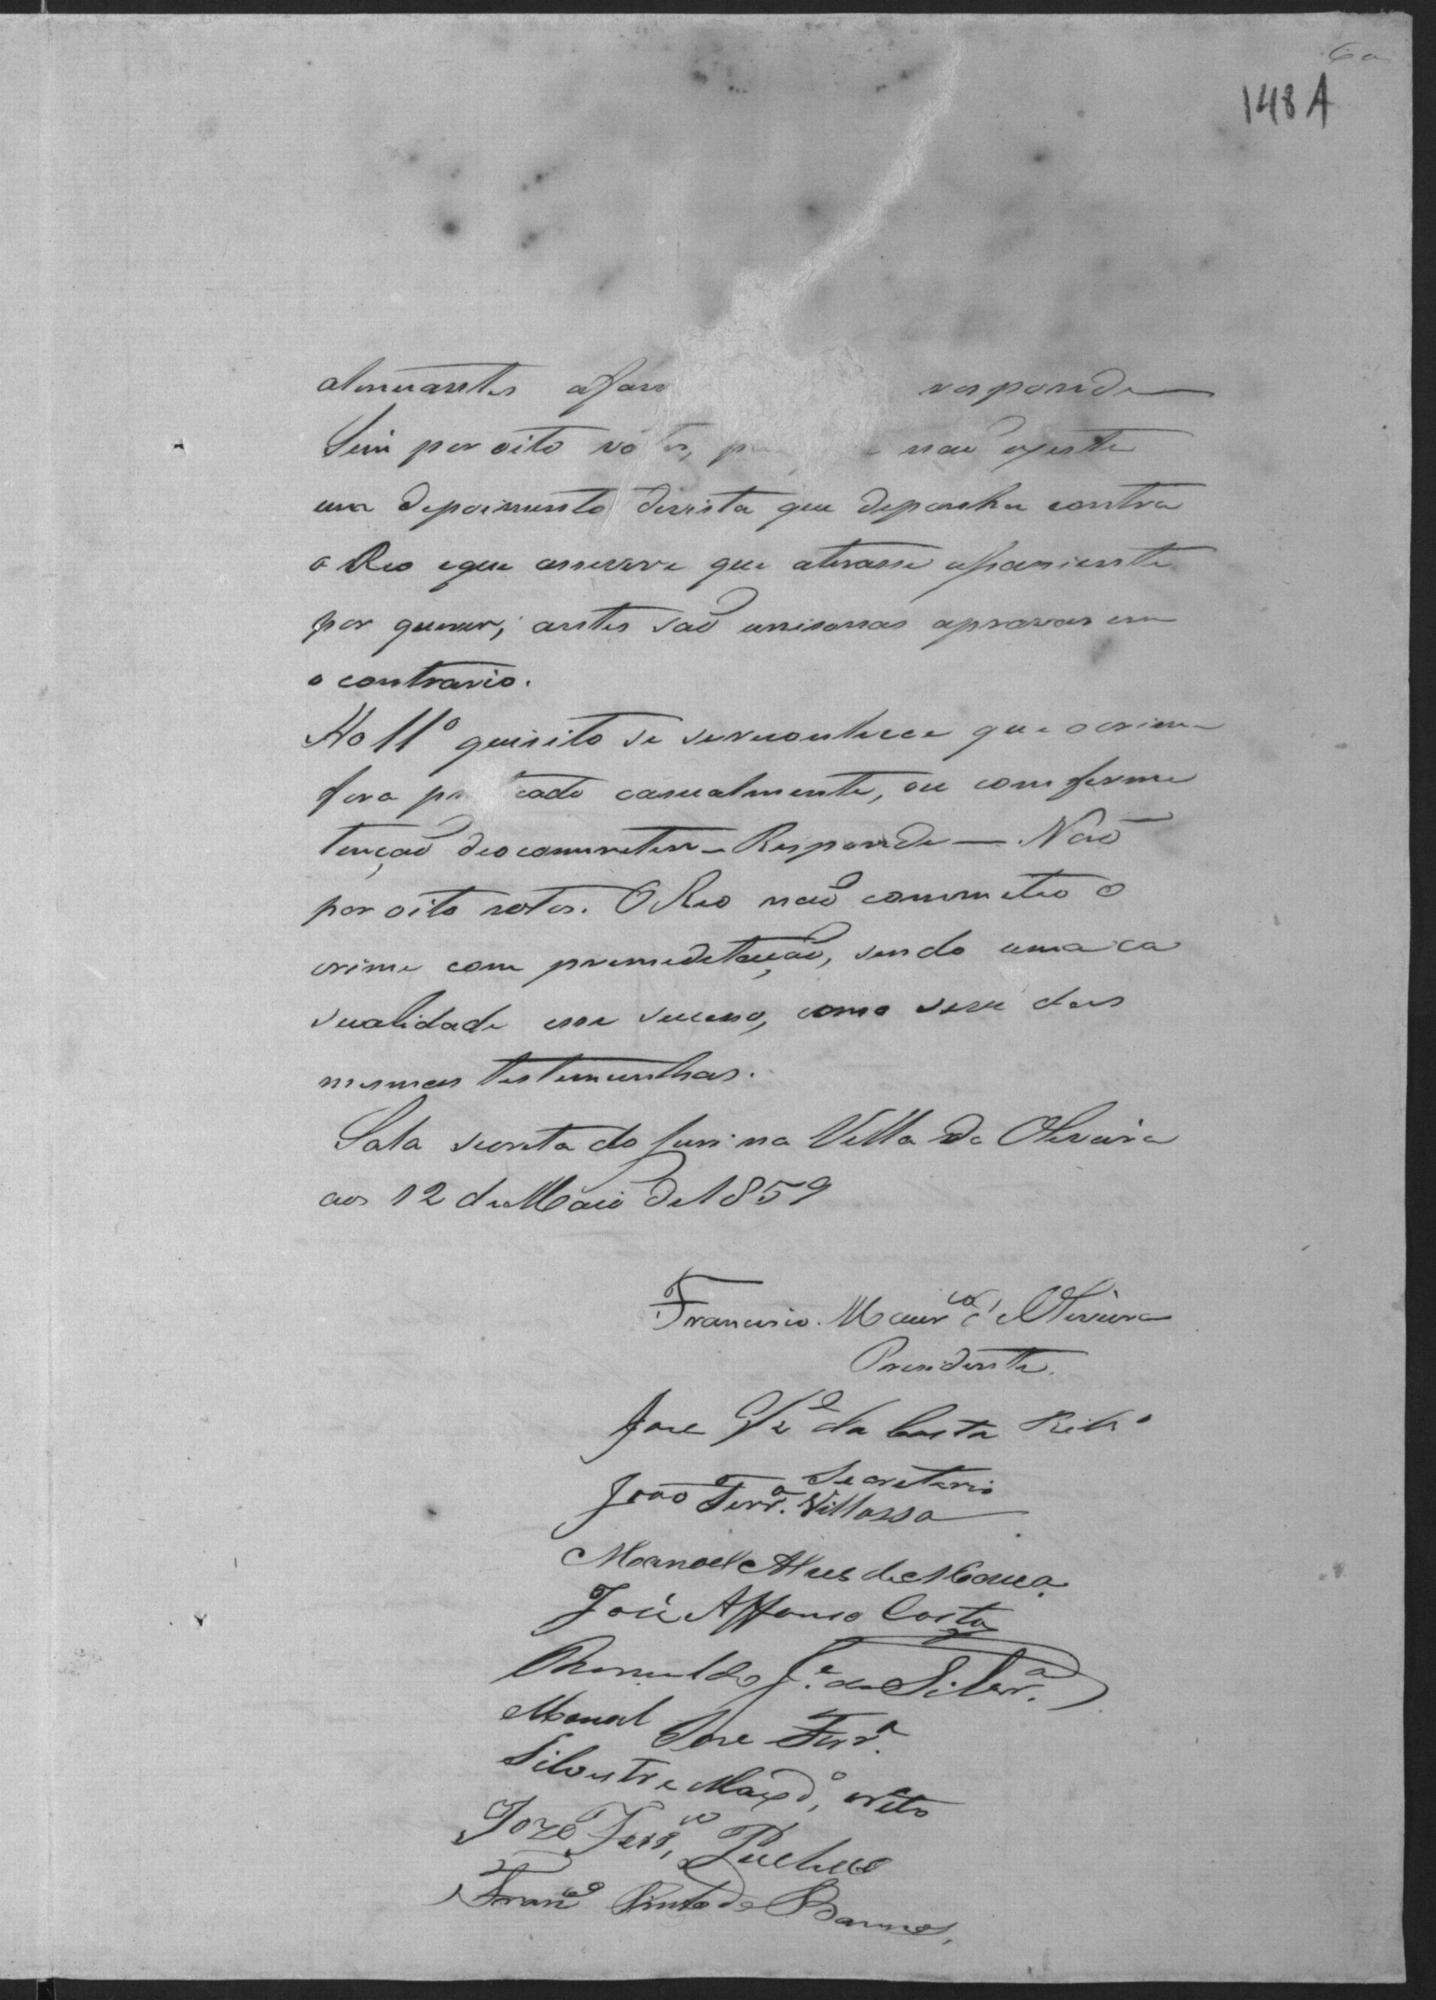 60
148 A
atenuantes afavor responde
Sim por oito votos, não existe
um depoimento de vista que deponha contra
o Reo e que asservere que atirasse apaciente
por querer; antes são unisonas aprovarem
o contrario.
Ao 11º quisito se se reconhece que o crime
fora praticado casualmente, ou com firme
tenção de o cometter - Responde — Não
por oito votos. O Reo não commeteo o
crime com premeditação, sendo uma ca
sualidade esse sucesso, como se vê das
mesmas testemunhas.
Sala secreta do Juri na Villa da Oliveira
aos 12 de Maio de 1859
Francisco de Oliveira
Presidente.
José da Costa Ribrº
Secretario
João Ferrª. Villassa
Manoel Alves de Moura
José Affonso Costa
Romualdo Jº. da Silvrª.
Manoel José Ferrª.
Silvestre Machdº, Neto
Jozé Ferrª, Pacheco
Francº Pinto de Barros,